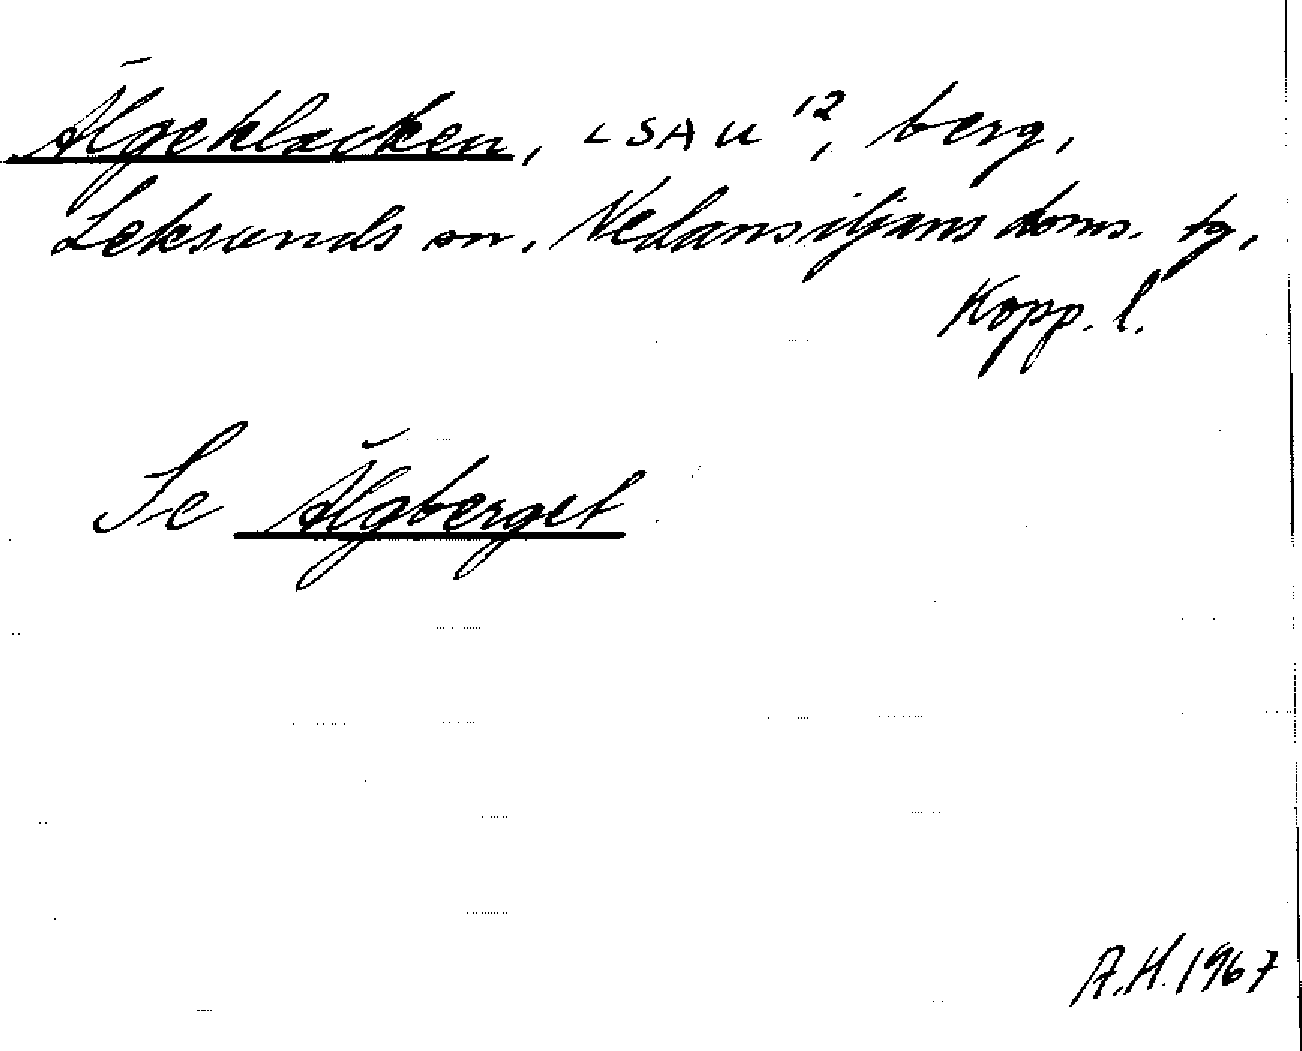 Älgeklacken, LSA u 12, berg,
Leksands sn, Nedansiljans doms. tg,
Kopp. l.
Se Älgberget
A.H. 1967